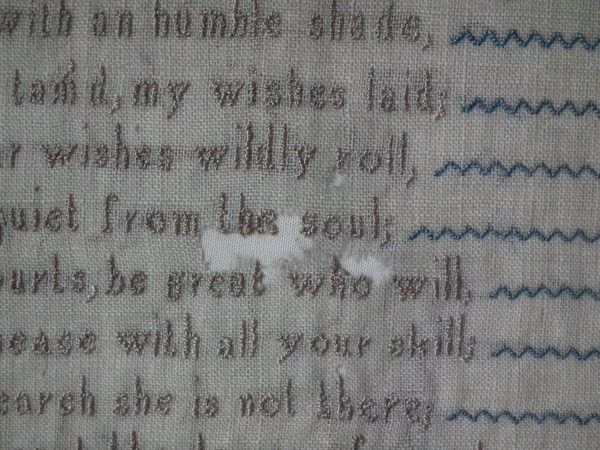 with an humble shade,
tam'd, my wishes laid;
wishes wildly roll,
quiet from the soul;
be great who will,
with all your skill;
search she is not there;